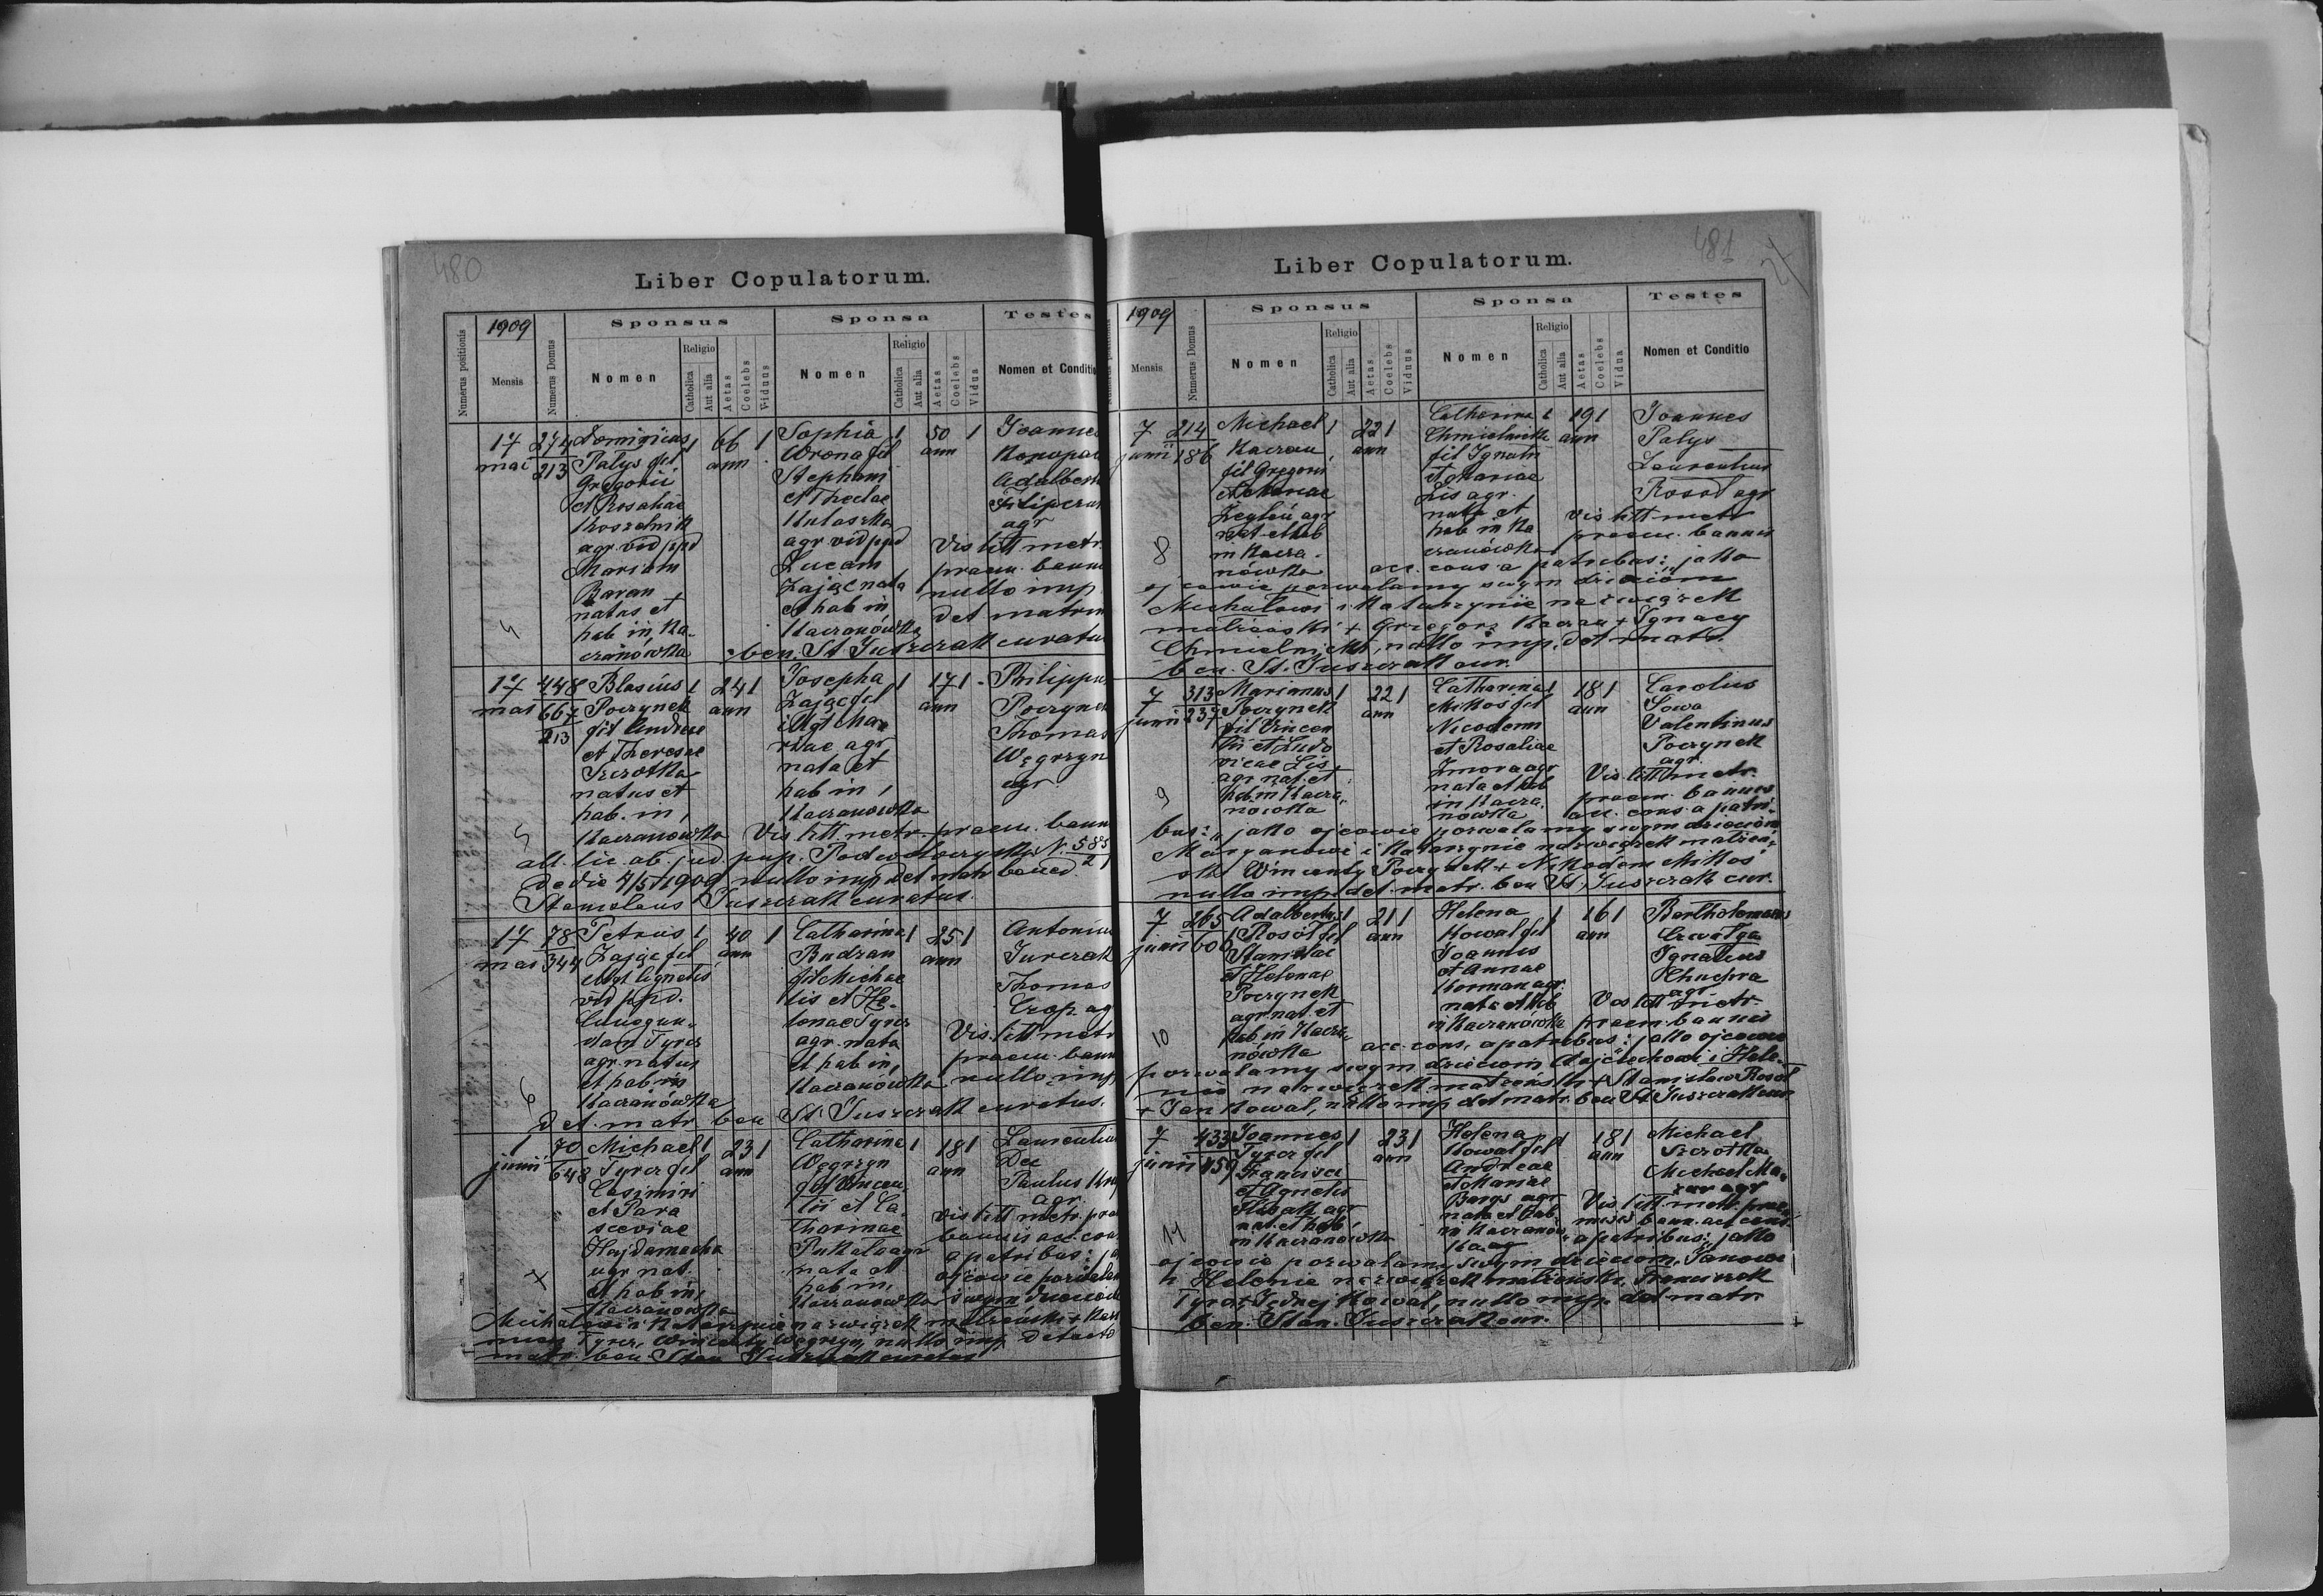 480
Liber Copulatorum.
Numerus positionis
1909
Mensis
Numerus Domus
Sponsus
Nomen
Religio
Catholica
Aut alia
Aetas
Coelebs
Viduus
Sponsa
Nomen
Religio
Catholica
Aut alia
Aetas
Coelebs
Vidua
Testes
Nomen et Conditio
17
mai
274
213
Dominicus
Palys fil
Gregorii
et Rosaliae
Koszelnik
agr vid ppd
Mariam
Baran
natus et
hab in Ka-
czanówka
1
66
ann
1
Sophia
Wrona fil
Stephani
et Theclae
Kulaszka
agr vid ppd
Lucam
Zając nata
et hab in
Kaczanówka
1
50
ann
1
Joannes
Konopa
Adalbert
Filipczu
agr
Vis litt metr.
praem. bann
nullo imp
det matrim
ben. St Juszczak curatus
17
mai
448
667
213
Blasius
Poczynek
fil Andreae
et Theresae
Szczotka
natus et
hab. in
Kaczanowka
1
24 1
ann
Josepha
Zając fil
Mgt Ma
riae agr
nata et
hab in
Kaczanowka
1
17 1
ann
Philippus
Poczynek
Thomas
Węgrzyn
agr
Vis litt. metr. praem. bann
all. lic. ab. jud. pup. Podwołoczyska N. 585/21
de die 4/5 1909 nullo imp det matr bened.
Stanislaus Juszczak curatus.
17
mai
78
344
Petrus
Zając fil
Mgt Agnetis
vid ppd.
Cunegun-
dam Tyrcz
agr. natus
et hab in
Kaczanówka
1
40
ann
1
Catharina
Budzan
fil Michae
lis et He-
lenae Tyrcz
agr. nata
et hab in
Kaczanówka
1
25 1
ann
Antonius
Jurczak
Thomas
Czop ag
Vis. litt metr
praem. bann
nullo imp
det. matr. ben St. Juszczak curatus.
6
1
junii
70
648
Michael
Tyrcz fil
Casimiri
et Para
sceviae
Hajdamacha
agr nat.
et hab in
Kaczanowka
1
23 1
ann
Catharina
Węgrzyn
fil Vincen
tii et Ca-
tharinae
Pukała agr
nata et
hab in
Kaczanowka
1
18 1
ann
Laurentius
Dec
Paulus
agr.
Vis litt metr. pra
bannis acc. con
a patribus: ja
ojcowie pozwalam
swym dzieciom
Michałowi i Katarzynie na związek małżeński + Kazi
mierz Tyrcz, Wincenty Węgrzyn, nullo imp detecto
matr. ben. Stan Juszczak curatus
7
481
Liber Copulatorum.
1909
Mensis
Numerus Domus
Sponsus
Nomen
Religio
Catholica
Aut alia
Aetas
Coelebs
Viduus
Sponsa
Nomen
Religio
Catholica
Aut alia
Aetas
Coelebs
Vidua
Testes
Nomen et Conditio
7
junii
214
186
Michael
Kaczan
fil Gregorii
agr
nat et hab
in Kacza-
nówka
1
22 1
ann
Catharina
Chmielnicka
fil Ignatii
et Mariae
Lis agr.
nata et
hab in Ka
czanówka
1
19 1
ann
Joannes
Palys
Laurentius
Rosół agr
Vis litt metr
praem. bannis
acc. cons a patribus: "jako
ojcowie pozwalamy swym dzieciom
Michałowi i Katarzynie na związek
małżeński + Grzegorz Kaczan + Ignacy
Chmielnicki, nullo imp. det matr
ben. St. Juszczak cur.
8
7
junii
313
237
Marianus
Poczynek
fil Vincen
tii et Ludo
vicae Lis
agr nat. et
hab in Kacza-
nówka
1
22 1
ann
Catharina
Mikos fil
Nicodem
et Rosaliae
Zmora agr
nata et hab
in Kacza-
nowka
1
18 1
ann
Carolus
Sowa
Valentinus
Poczynek
agr.
Vis. litt metr.
praem. bannis
acc. cons. a patri-
bus: "jako ojcowie pozwalamy swym dzieciom
Maryanowi i Katarzynie na związek małżeń-
ski Wincenty Poczynek + Nikodem Mikos
nullo imp. det. matr. ben St. Juszczak cur.
9
7
junii
265
606
Adalbertus
Rosół fil
Stanislai
et Helenae
Poczynek
agr. nat. et
hab in Kacza-
nówka
1
21 1
ann
Helena
Kowal fil
Joannis
et Annae
Korman agr.
nata et hab
in Kaczanówka
1
16 1
ann
Bartholomaeus
Ignatius
agr
Vis litt metr.
praem. bannis
acc. cons. a patribus: "jako ojcowie
pozwalamy swym dzieciom Wojciechowi i Hele-
nie na związek małżeński + Stanisław Rosół
+ Jan Kowal, nullo imp det matr. ben St Juszczak cur
10
7
junii
433
459
Joannes
Tyrcz fil
Francisci
et Agnetis
agr
nat. et hab
in Kaczanowka
1
23 1
ann
Helena
Kowal fil
Andreae
et Mariae
agr
nata et hab
in Kaczanów
ka
1
18 1
ann
Michael
Szczotka
Michael Ma-
zur agr
Vis litt. metr. prae-
missis bann. acc cons.
a patribus: jako
ojcowie pozwalamy swym dzieciom, Janowi
i Helenie na związek małżeński, Franciszek
Tyrcz + Jędrzej Kowal, nullo imp. det matr
ben. Stan. Juszczak cur.
11